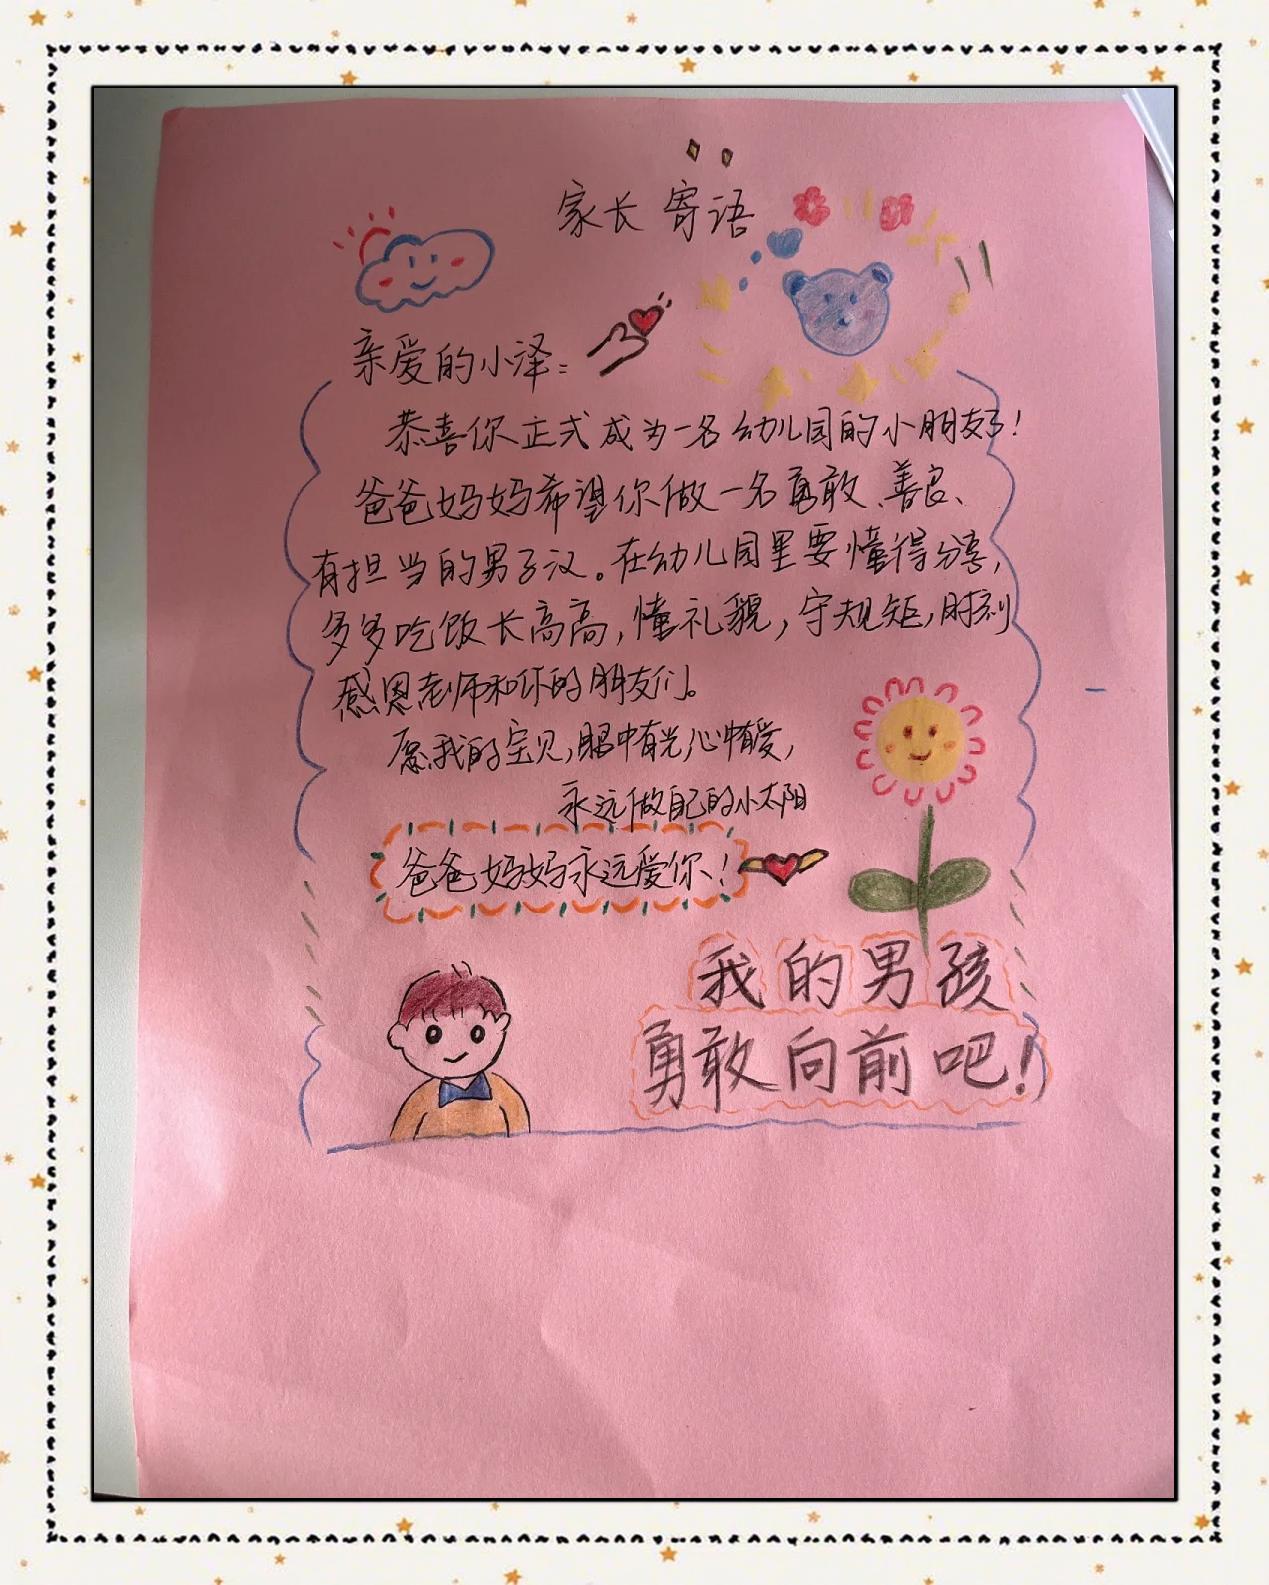 家长寄语
亲爱的小泽：
恭喜你正式成为一名幼儿园的小朋友了！
爸爸妈妈希望你做一名勇敢、善良、
有担当的男子汉。在幼儿园里要懂得分享，
多多吃饭长高高，懂礼貌，守规矩，时刻
感恩老师和你的朋友们。
愿我的宝贝，眼中有光心中有爱，
永远做自己的小太阳
爸爸妈妈永远爱你！
我的男孩
勇敢向前吧！